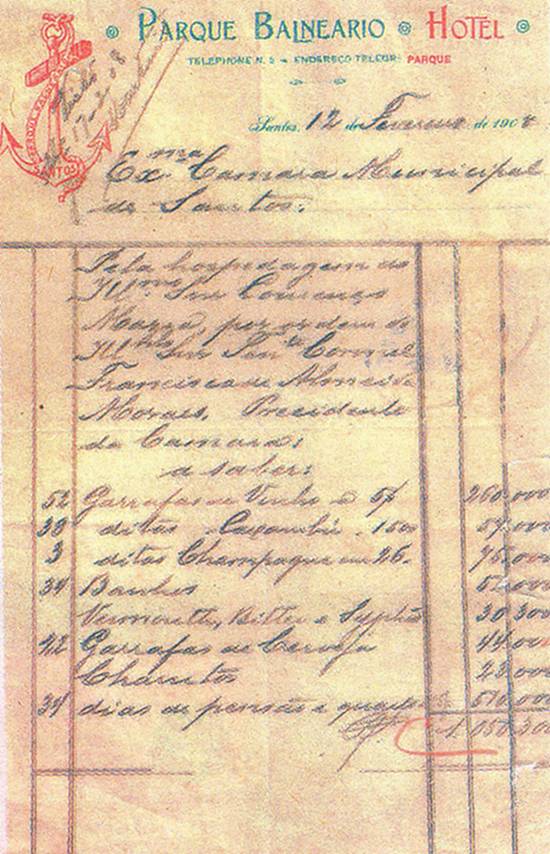 PARQUE BALNEARIO HOTEL
TELEPHONE N. 2 ENDEREÇO TELEGR: PARQUE
SANTOS
17-2-08
Santos, 12 de Fevereiro de 1908
Exma Camara Municipal
de Santos.
Pela hospedagem do
Illmo Snr Lourenço
por ordem do
Illmo Snr Tente Coronel
Francisco de Almeida
Moraes, Presidente
da Camara;
a saber:
52 Garrafas de Vinho a 5$ 260.000
38 ditas Caxambú 1500 57.000
3 ditas Champagne 75.000
34 Banhos
Vermouth, Bitter e Syphão 30 300
Garrafas de Cerveja 44.000
Charutos
34 dias de pensão e quarto 510.000